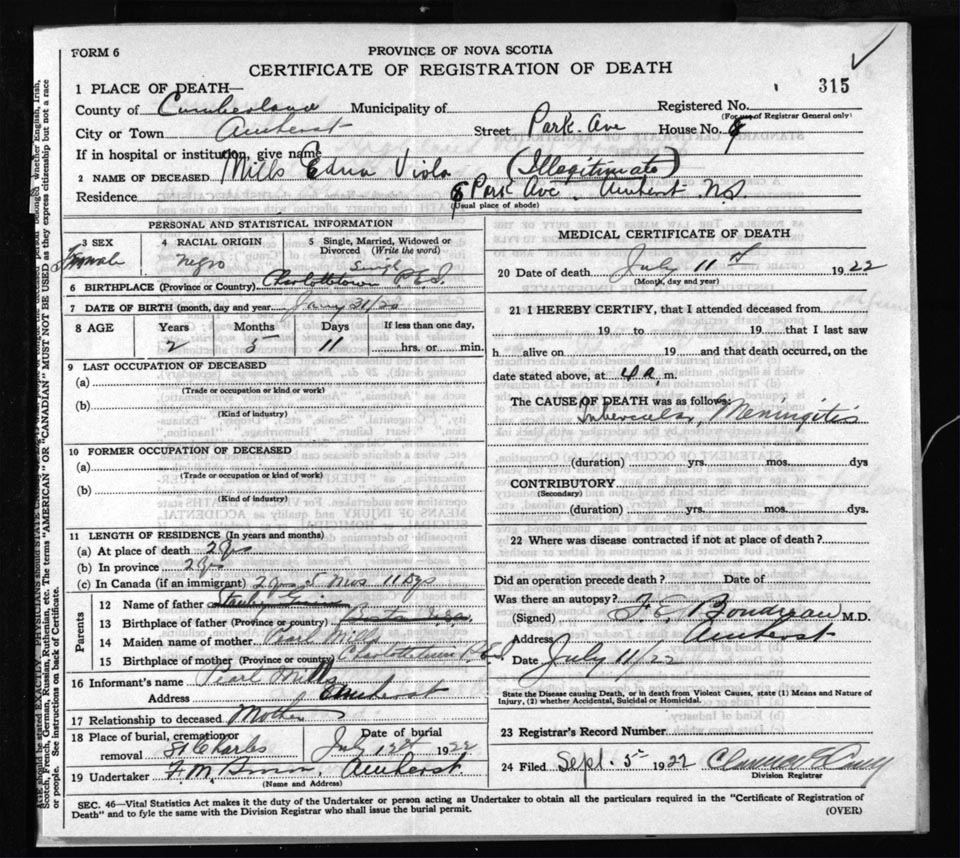 FORM 6
PROVINCE OF NOVA SCOTIA
CERTIFICATE OF REGISTRATION OF DEATH
315
1 PLACE OF DEATH—
County of Cumberland Municipality of Registered No.
(For use of Registrar General only)
City or Town Amherst Street Park Ave House No. 8
If in hospital or institution, give name
2 NAME OF DECEASED Mills Edna Viola (Illegitimate)
Residence 8 Park Ave. Amherst N.S.
(Usual place of abode)
PERSONAL AND STATISTICAL INFORMATION
3 SEX Female
4 RACIAL ORIGIN Negro
5 Single, Married, Widowed or Divorced (Write the word) Single
6 BIRTHPLACE (Province or Country) Charlottetown P.E.I.
7 DATE OF BIRTH (month, day and year) Jany 31/20
8 AGE Years Months Days If less than one day,
2 5 11 hrs. or min.
9 LAST OCCUPATION OF DECEASED
(a)
(Trade or occupation or kind or work)
(b)
(Kind of industry)
10 FORMER OCCUPATION OF DECEASED
(a)
(Trade or occupation or kind of work)
(b)
(Kind of industry)
11 LENGTH OF RESIDENCE (In years and months)
(a) At place of death 2 yrs
(b) In province 2 yrs
(c) In Canada (if an immigrant) 2 yrs 5 Mos 11 Dys
Parents
12 Name of father
13 Birthplace of father (Province or country)
14 Maiden name of mother Pearl Mills
15 Birthplace of mother (Province or country) Charlottetown P.E.I.
16 Informant's name Pearl Mills
Address Amherst
17 Relationship to deceased Mother
18 Place of burial, cremation or removal St Charles Date of burial July 12th 1922
19 Undertaker F. M. Amherst
(Name and Address)
MEDICAL CERTIFICATE OF DEATH
20 Date of death July 11th 1922
(Month, day and year)
21 I HEREBY CERTIFY, that I attended deceased from
19 to 19 that I last saw
h alive on 19 and that death occurred, on the
date stated above, at 4 a. m.
The CAUSE OF DEATH was as follows:
Tubercular Meningitis
(duration) yrs. mos. dys
CONTRIBUTORY
(Secondary)
(duration) yrs. mos. dys.
22 Where was disease contracted if not at place of death?
Did an operation precede death? Date of
Was there an autopsy?
(Signed) F. E. Boudreau M.D.
Address Amherst
Date July 11/22
State the Disease causing Death, or in death from Violent Causes, state (1) Means and Nature of
Injury, (2) whether Accidental, Suicidal or Homicidal.
23 Registrar's Record Number
24 Filed Sept. 5th 1922
Division Registrar
SEC. 46—Vital Statistics Act makes it the duty of the Undertaker or person acting as Undertaker to obtain all the particulars required in the "Certificate of Registration of
Death" and to fyle the same with the Division Registrar who shall issue the burial permit.
(OVER)